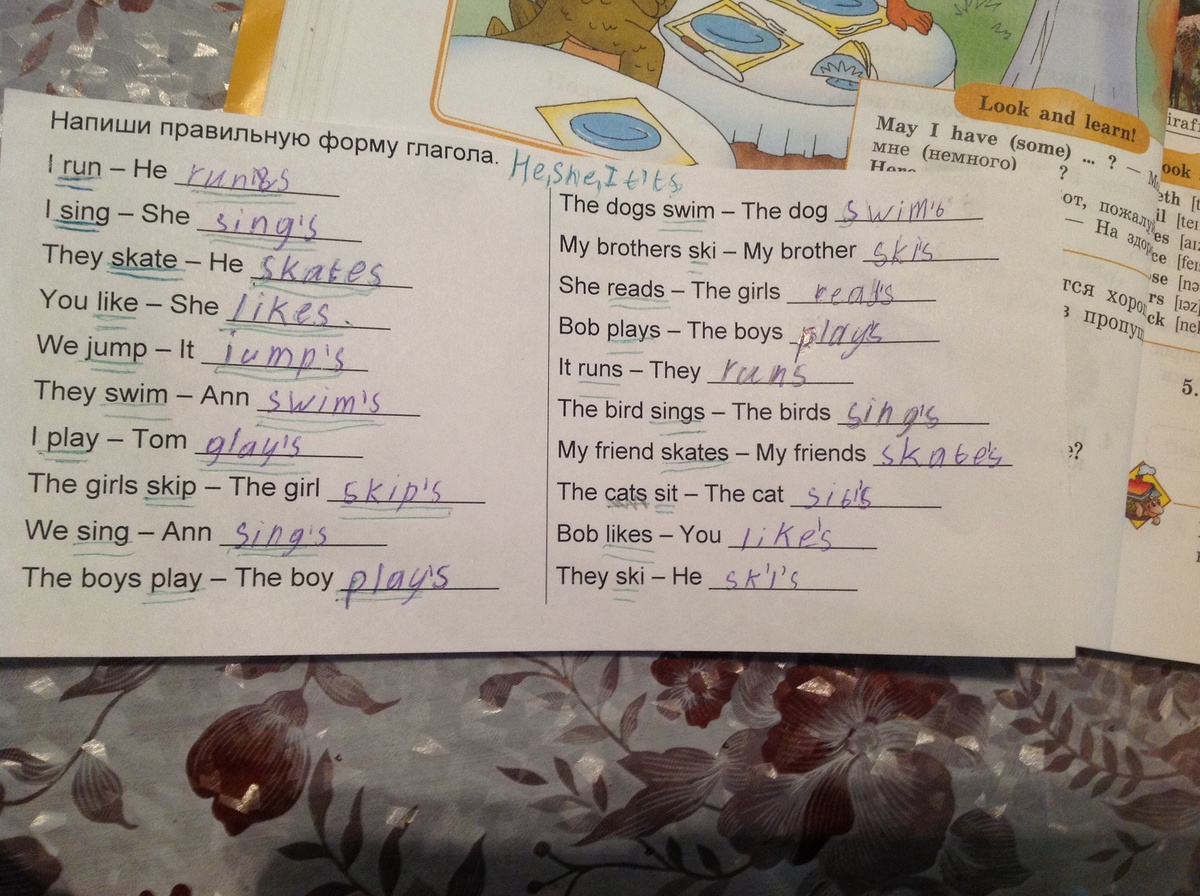 Напиши правильную форму глагола.
He, She, It's
I run – He runs
I sing – She sing's
They skate – He skates
You like – She likes.
We jump – It jump's
They swim – Ann swim's
I play – Tom play's
The girls skip – The girl skip's
We sing – Ann sing's
The boys play – The boy play's
The dogs swim – The dog swim's
My brothers ski – My brother ski's
She reads – The girls read's
Bob plays – The boys play's
It runs – They runs
The bird sings – The birds sing's
My friend skates – My friends skate's
The cats sit – The cat sit's
Bob likes – You like's
They ski – He ski's
Look and learn!
May I have (some) ... ? —
мне (немного) ?
— На
5.